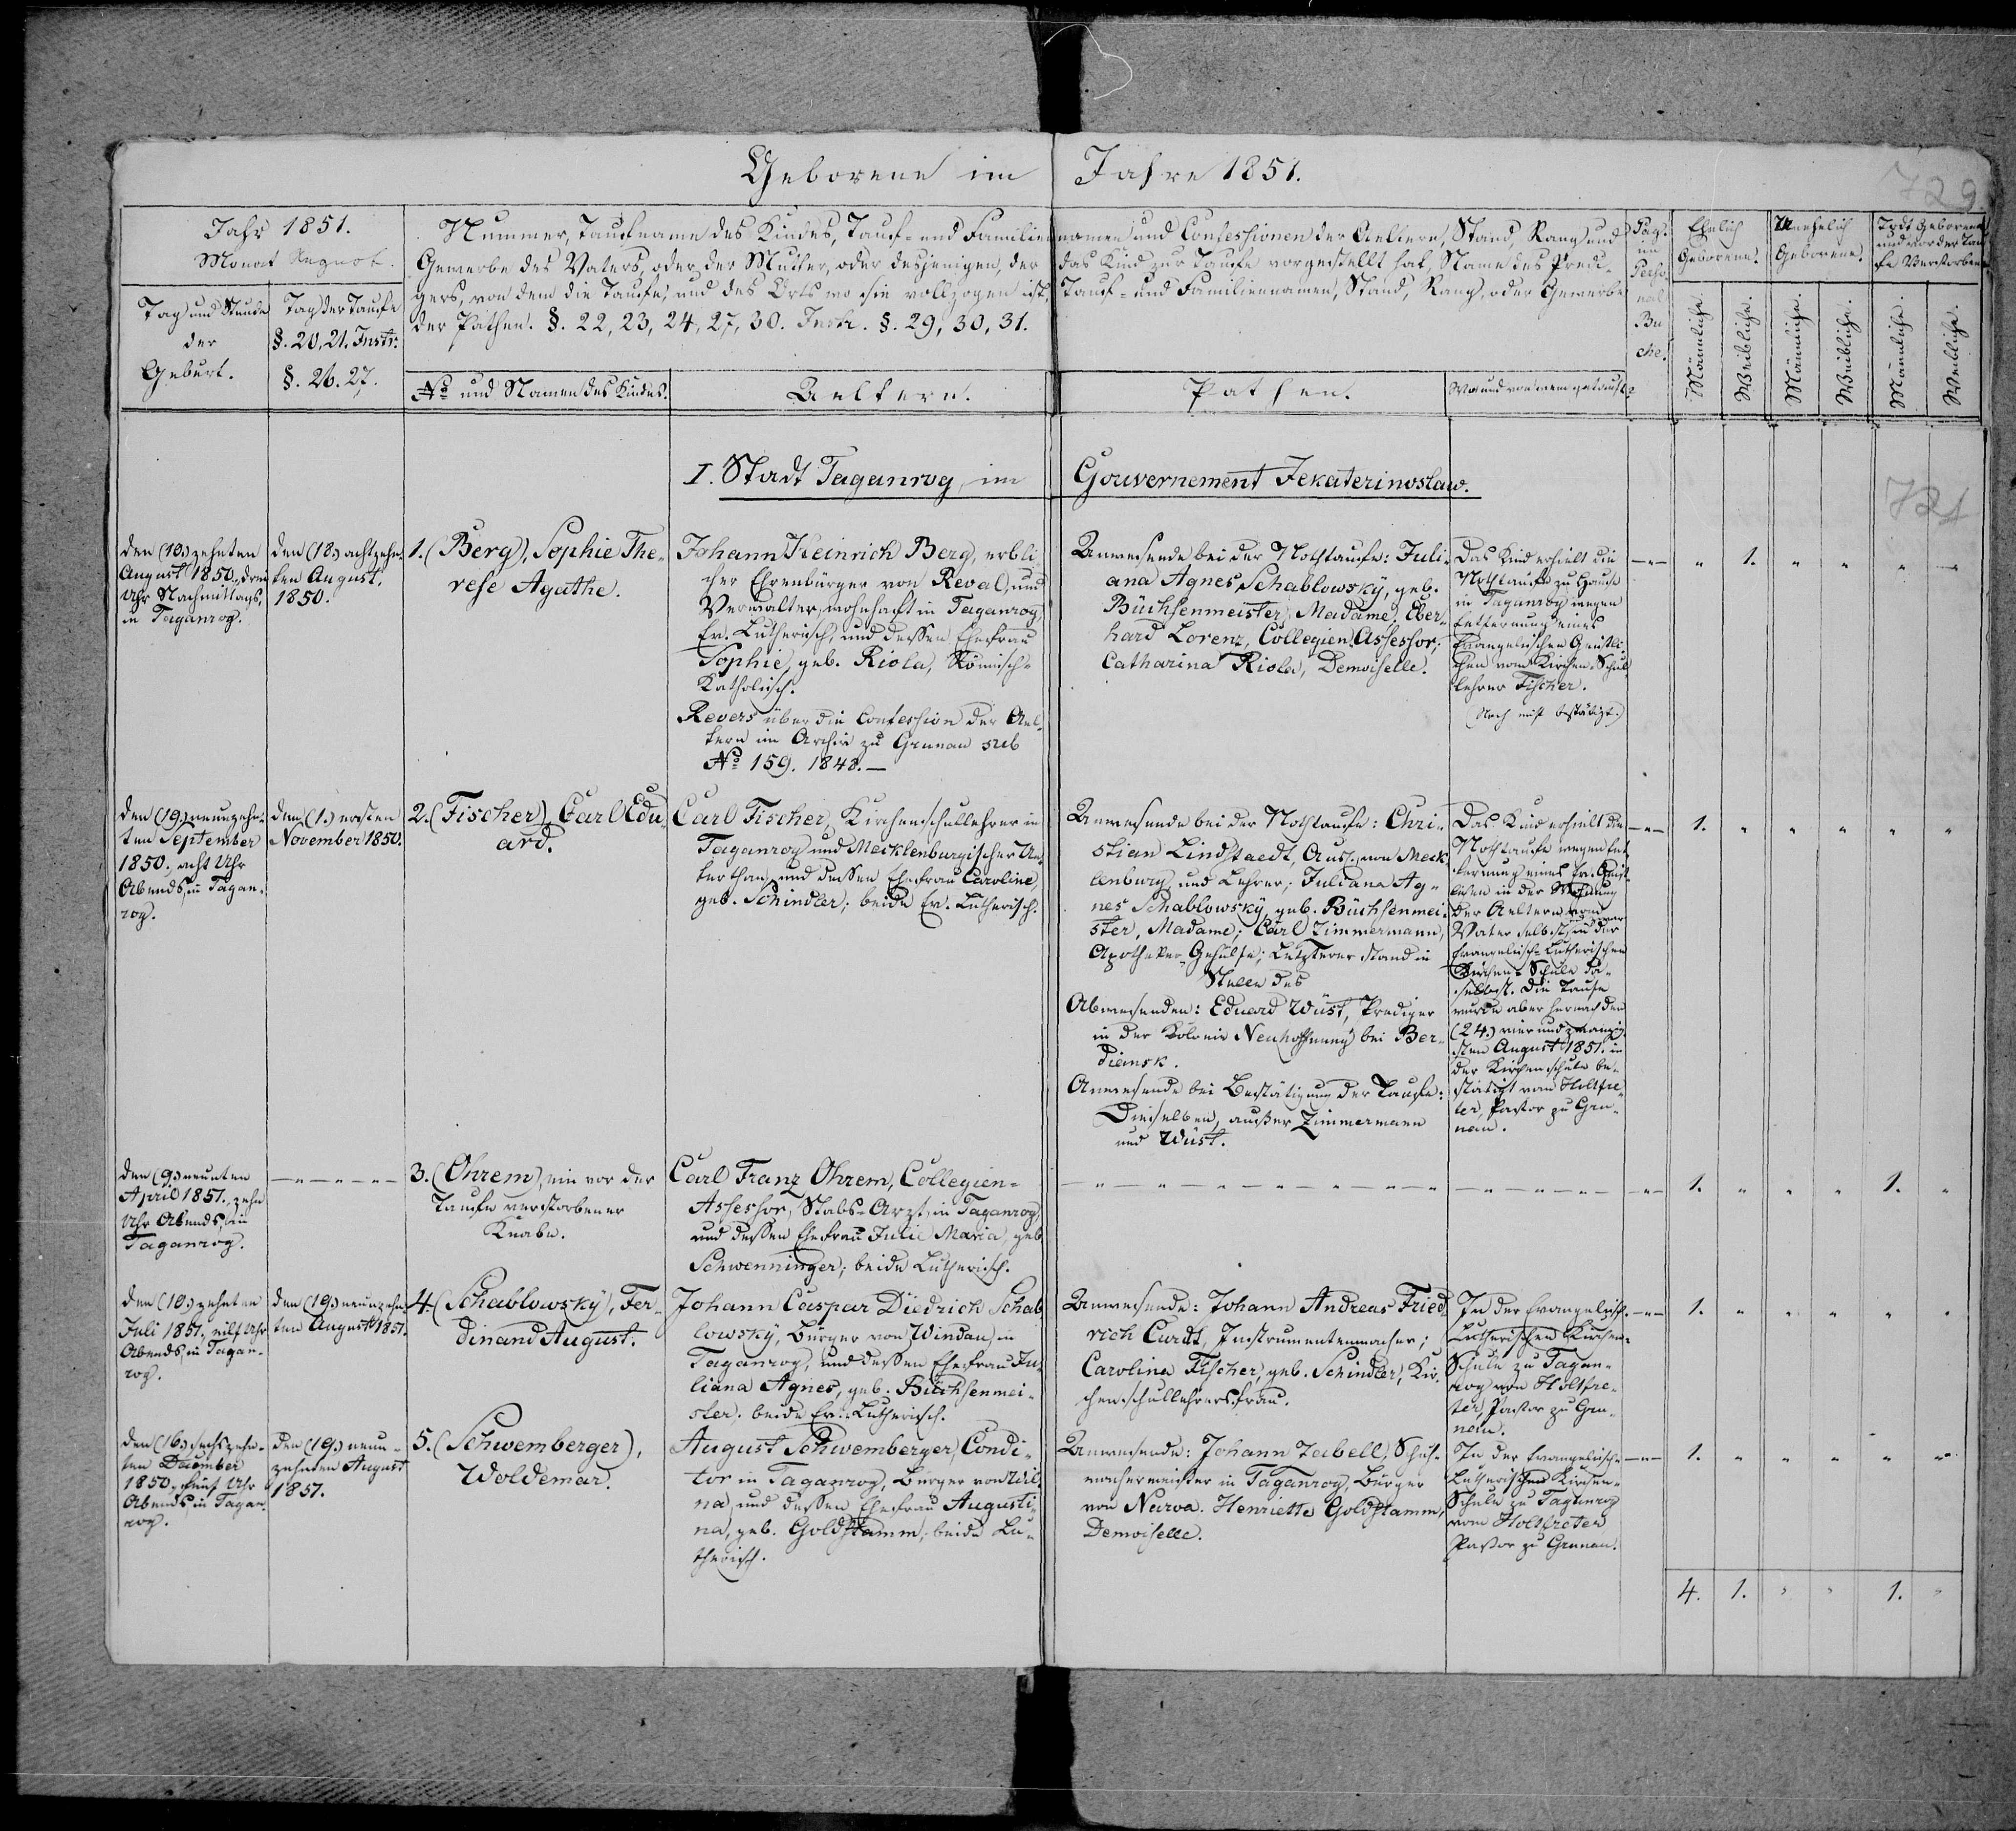 Geborene im Jahre 1851.
729.
Jahr 1851.
Monat August.
Tag und Stunde
der
Geburt.
Tag der Taufe
§. 20, 21. Instr.
§. 26. 27.
Nummer, Taufname des Kindes, Tauf- und Familiennamen und Confessionen der Aeltern, Stand, Rang und
Gewerbe des Vaters, oder der Mutter, oder desjenigen, der das Kind zur Taufe vorgestellt hat, Name des Predi-
gers, von dem die Taufe, und des Orts wo sie vollzogen ist, Tauf- und Familiennamen, Stand, Rang, oder Gewerbe
der Pathen. §. 22, 23, 24, 27, 30. Instr. §. 29, 30, 31.
No und Namen des Kindes.
Aeltern.
Pathen.
Wo und von wem getauft?
Pag.
im
Perso-
nal
Bu
che.
Ehelich
Geborene.
Unehelich
Geborene.
Todt Geborene
und vor der Tau-
fe Verstorbene
Männliche.
Weibliche.
Männliche.
Weibliche.
Männliche.
Weibliche.
I. Stadt Taganrog, im Gouvernement Jekaterinoslaw.
721
den (10.) zehnten
August 1850., drei
Uhr Nachmittags,
in Taganrog.
den (18.) achtzehn-
ten August.
1850.
1. (Berg), Sophie The-
rese Agathe.
Johann Heinrich Berg, erbli-
cher Ehrenbürger von Reval, und
Verwalter, wohnhaft in Taganrog,
Ev. Lutherisch, und dessen Ehefrau
Sophie, geb. Riola, Römisch-
Katholisch.
Revers über die Confession der Ael-
tern im Archiv zu Grunau sub
No 159. 1848. —
Anwesende bei der Nothtaufe: Juli-
ana Agnes Schablowsky, geb.
Büchsenmeister, Madame; Eber-
hard Lorenz, Collegien-Assessor;
Catharina Riola, Demoiselle.
Das Kind erhielt die
Nothtaufe zu Hause
in Taganrog wegen
Entfernung eines
Evangelischen Geistli-
chen vom Kirchen-Schul
lehrer Fischer.
(Noch nicht bestätigt.)
—„— „ 1. „ „ „ „
den (19.) neunzehn-
ten September
1850., acht Uhr
Abends, in Tagan-
rog.
den (1.) ersten
November 1850.
2. (Fischer), Carl Edu-
ard.
Carl Fischer, Kirchenschullehrer in
Taganrog und Mecklenburgischer Un-
terthan, und dessen Ehefrau Caroline,
geb. Schindler; beide Ev. Lutherisch.
Anwesende bei der Nothtaufe: Chri-
stian Lindstaedt, Ausl. von Meck-
lenburg, und Lehrer; Juliana Ag-
nes Schablowsky, geb. Büchsenmei-
ster, Madame; Carl Zimmermann,
Apotheker-Gehülfe; Letzterer stand in
Stelle des
Abwesenden: Eduard Wüst, Prediger
in der Kolonie Neuhoffnung bei Ber-
diansk.
Anwesende bei Bestätigung der Taufe:
Dieselben, außer Zimmermann
und Wüst.
Das Kind erhielt die
Nothtaufe wegen Ent-
fernung eines Ev. Geist-
lichen in der Wohnung
der Aeltern vom
Vater selbst, in der
Evangelisch-Lutherischen
Kirchen-Schule da-
selbst. Die Taufe
wurde aber hernach den
(24.) vier und zwanzig-
sten August 1851. in
der Kirchenschule be-
stätigt vom Holtfre-
ter, Pastor zu Gru-
nau.
—„— 1. „ „ „ „ „
den (9.) neunten
April 1851., zehn
Uhr Abends, in
Taganrog.
—„—„—„—
3. (Ohrem), ein vor der
Taufe verstorbener
Knabe.
Carl Franz Ohrem, Collegien-
Assessor, Stabs-Arzt, in Taganrog,
und dessen Ehefrau Julie Maria, geb.
Schwenninger; beide Lutherisch.
—„—„—„—„—„—
—„— 1. „ „ „ 1. „
den (10.) zehnten
Juli 1851., eilf Uhr
Abends, in Tagan-
rog.
den (19.) neunzehn-
ten August 1851.
4. (Schablowsky), Fer-
dinand August.
Johann Caspar Diedrich Schab-
lowsky, Bürger von Windau, in
Taganrog, und dessen Ehefrau Ju-
liana Agnes, geb. Büchsenmei-
ster. beide Ev. Lutherisch.
Anwesende: Johann Andreas Fried-
rich Curdt, Instrumentenmacher;
Carolina Fischer, geb. Schindler, Kir-
chenschullehrersfrau.
In der Evangelisch-
Lutherischen Kirchen-
Schule zu Tagan-
rog von Holtfre-
ter, Pastor zu Gru-
nau.
—„— 1. „ „ „ „ „
den (16.) sechszehn-
ten December
1850., fünf Uhr
Abends, in Tagan-
rog.
den (19.) neun-
zehnten August
1851.
5. (Schwemberger),
Woldemar.
August Schwemberger, Condi-
tor in Taganrog, Bürger von Wil-
na, und dessen Ehefrau Augusti-
na, geb. Goldstamm; beide Lu-
therisch.
Anwesende: Johann Zabell, Schuh-
machermeister in Taganrog, Bürger
von Narva. Henriette Goldstamm,
Demoiselle.
In der Evangelisch-
Lutherischen Kirchen-
Schule zu Taganrog
vom Holtfreter
Pastor zu Grunau.
—„— 1. „ „ „ „ „
4. 1. „ „ 1. „